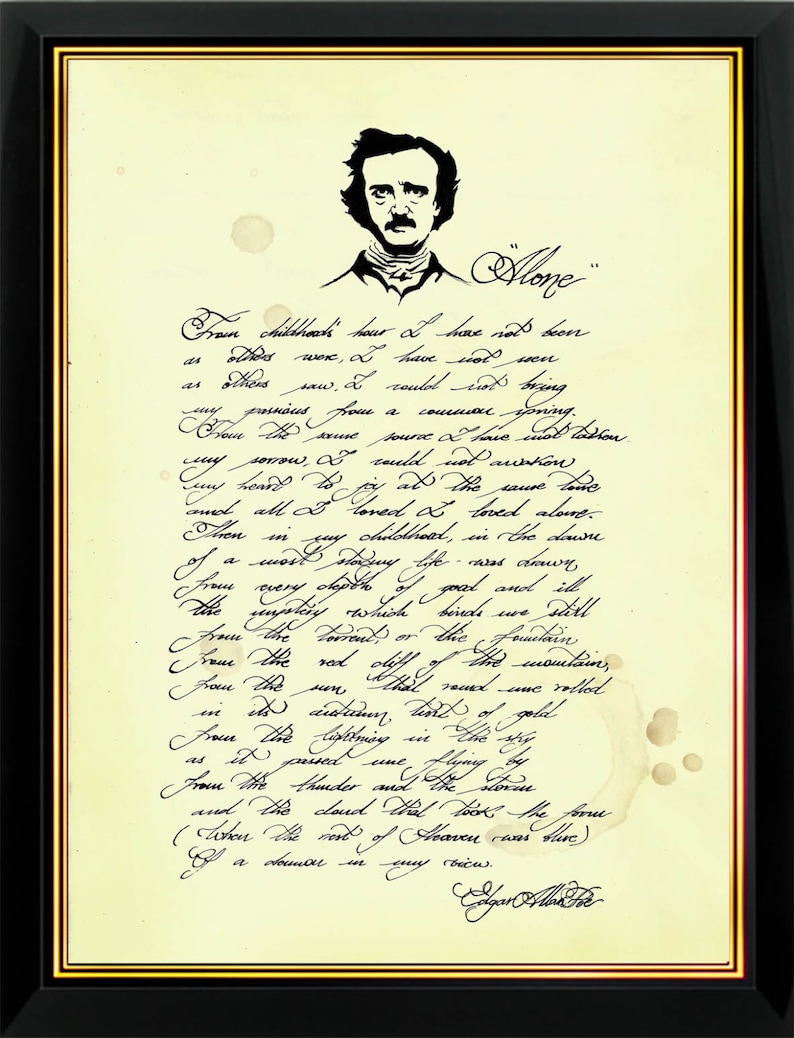 "Alone"
From childhood's hour I have not been
as others were, I have not seen
as others saw, I could not bring
my passions from a common spring.
From the same source I have not taken
my sorrow, I could not awaken
my heart to joy at the same tone
and all I loved I loved alone.
Then in my childhood, in the dawn
of a most stormy life - was drawn
from every depth of good and ill
the mystery which binds me still
from the torrent, or the fountain
from the red cliff of the mountain,
from the sun that round me rolled
in its autumn tint of gold
from the lightning in the sky
as it passed me flying by
from the thunder and the storm
and the cloud that took the form
(When the rest of Heaven was blue)
Of a demon in my view.
Edgar Allan Poe